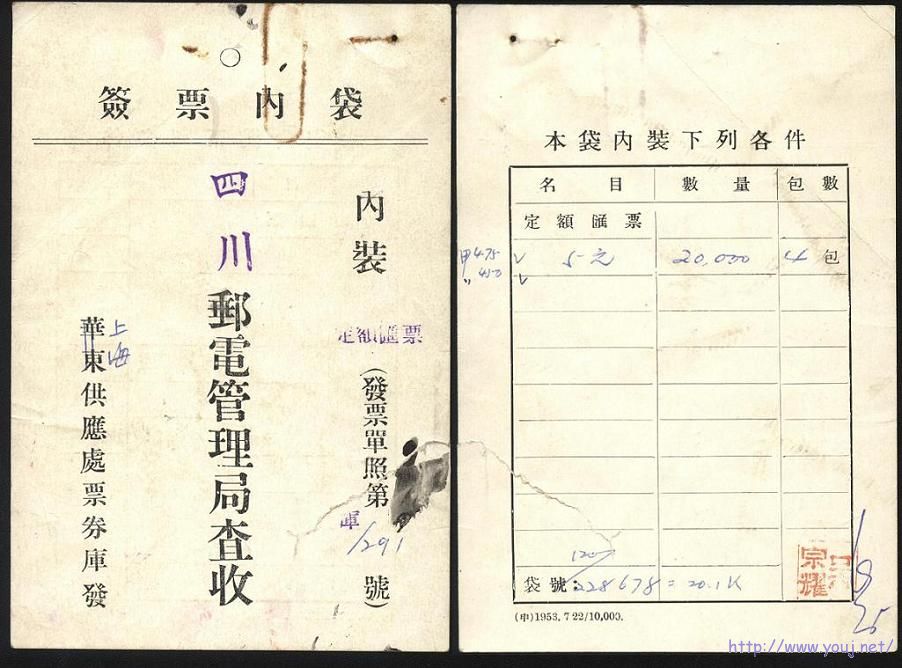 袋內票簽
內裝
定額匯票
(發票單照第
軍
1291
號)
四川
郵電管理局査收
上海
華東供應處票券庫發
本袋內裝下列各件
名目 數量 包數
定額匯票
甲475 5元 20,000 4 包
〃450
120
袋號: 228678 = 20.1K
宗耀
(申)1953.7 22/10,000.
http://www.youj.net/